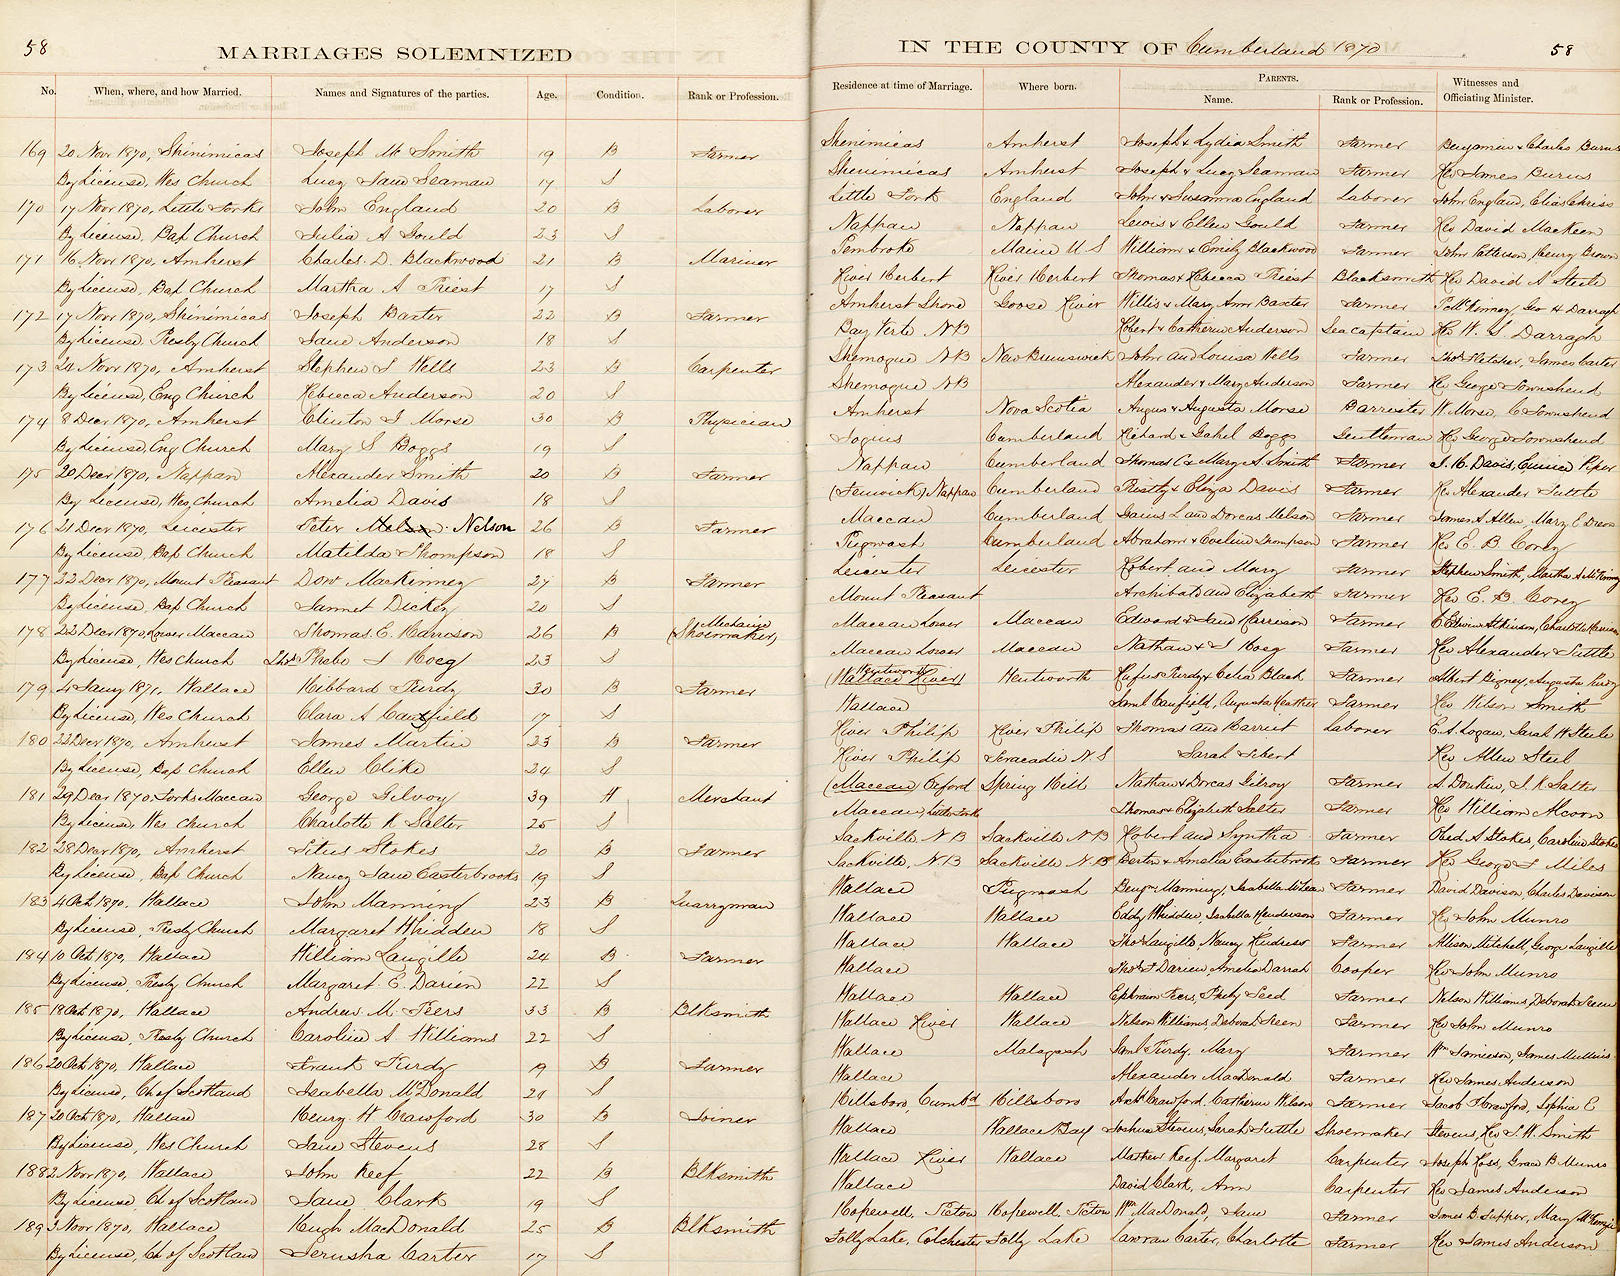 58
MARRIAGES SOLEMNIZED
IN THE COUNTY OF Cumberland 1870
58
No. When, where, and how Married. Names and Signatures of the parties. Age. Condition. Rank or Profession. Residence at time of Marriage. Where born. PARENTS. Name. Rank or Profession. Witnesses and Officiating Minister.
169 20 Novr 1870, Shinimicas Joseph Mc Smith 19 B Farmer Shinimicas Amherst Joseph & Lydia Smith Farmer Benjamin & Charles Burns
By License, Wes Church Lucy Jane Seaman 17 S Shinimicas Amherst Joseph & Lucy Seaman Farmer Rev James Burns
170 17 Novr 1870, Little Forks John England 20 B Laborer Little Fork England John & Susanna England Laborer John England, Elias
By License, Bap Church Julia A Gould 23 S Nappan Nappan Lewis & Ellen Gould Farmer Rev David MacKeen
171 16 Novr 1870, Amherst Charles D. Blackwood 21 B Mariner Pembroke Maine U S William & Emily Blackwood Farmer John Patterson, Henry Brown
By License, Bap Church Martha A Friest 17 S River Herbert River Herbert Thomas & Rebecca Friest Blacksmith Rev David A Steele
172 17 Novr 1870, Shinimicas Joseph Baxter 22 B Farmer Amherst Shore Goose River Willis & Mary Ann Baxter Farmer Geo H Darragh
By License Presby Church Jane Anderson 18 S Bay Verte NB Robert & Catherine Anderson Sea captain Rev W. S. Darragh
173 24 Novr 1870, Amherst Stephen S Wells 23 B Carpenter Shemogue NB New Brunswick John and Louisa Wells Farmer Thos Fletcher, James Carter
By License, Eng Church Rebecca Anderson 20 S Shemogue NB Alexander & Mary Anderson Farmer Rev George Townshend
174 8 Decr 1870, Amherst Clinton S Morse 30 B Physician Amherst Nova Scotia Angus & Augusta Morse Barrister W. Morse, C Townshend
By License, Eng Church Mary S Boggs 19 S Cumberland Richard & Boggs Gentleman Rev George Townshend
175 20 Decr 1870, Nappan Alexander Smith 20 B Farmer Nappan Cumberland Thomas C & Mary A. Smith Farmer S. H. Davis, Eunice Piper
By License, Wes Church Amelia Davis 18 S (Fenwick) Nappan Cumberland & Eliza Davis Farmer Rev Alexander Tuttle
176 21 Decr 1870, Leicester Peter Nelson 26 B Farmer Maccan Cumberland Gaius L and Dorcas Melson Farmer James A Allen, Mary E
By License, Bap Church Matilda Thompson 18 S Pugwash Cumberland Abraham & Eveline Thompson Farmer Rev E. B. Corey
177 22 Decr 1870, Mount Pleasant Dow MacKinney 27 B Farmer Leicester Leicester Robert and Mary Farmer Stephen Smith, Martha A McKinney
By License, Bap Church Jannet Dickey 20 S Mount Pleasant Archibald and Elizabeth Farmer Rev E. B. Corey
178 22 Decr 1870, Lower Maccan Thomas E. Harrison 26 B Mechanic (Shoemaker) Maccan Lower Maccan Edward & Jane Harrison Farmer C Edwin Atkinson, Charlotte Harrison
By License, Wes Church Phebe S Hoeg 23 S Maccan Lower Maccan Nathan & S Hoeg Farmer Rev Alexander Tuttle
179 4 Jany 1871, Wallace Hibbard Purdy 30 B Farmer Wentworth (Wallace River) Wentworth Rufus Purdy & Celia Black Farmer Albert Bigney, Augusta Purdy
By License, Wes Church Clara A Canfield 17 S Wallace Saml Canfield, Augusta Heather Farmer Rev Wilson Smith
180 22 Decr 1870, Amherst James Martin 23 B Farmer River Philip River Philip Thomas and Harriet Laborer E. A. Logan, Sarah H Steele
By License, Bap Church Ellen Clike 24 S River Philip Tracadie N S Sarah Sibert Rev Allen Steel
181 29 Decr 1870 Forks Maccan George Gilroy 39 H Merchant (Maccan) Oxford Spring Hill Nathan & Dorcas Gilroy Farmer A. Donkin, J. R Salter
By License, Wes Church Charlotte R Salter 25 S Maccan, Little Forks Thomas & Elizabeth Salter Farmer Rev William Alcorn
182 28 Decr 1870, Amherst Titus Stokes 20 B Farmer Sackville, N B Sackville NB Robert and Syntha Farmer Obed A Stokes, Caroline Stokes
By License, Bap Church Nancy Jane Easterbrooks 19 S Sackville, NB Sackville NB & Amelia Easterbrooks Farmer Rev George F Miles
183 4 Oct 1870, Wallace John Manning 23 B Quarryman Wallace Pugwash Benjn Manning, Isabella McLean Farmer David Davison, Charles Davison
By License, Presby Church Margaret Whidden 18 S Wallace Wallace Eddy Whidden, Isabella Henderson Farmer Rev John Munro
184 10 Oct 1870, Wallace William Langille 24 B Farmer Wallace Wallace Thos Langille, Nancy Farmer Allison Mitchell, George Langille
By License, Presby Church Margaret E. Darien 22 S Wallace Thos S Darien, Amelia Darrah Cooper Rev John Munro
185 18 Oct 1870, Wallace Andrew M. Peers 33 B BlKsmith Wallace Wallace Ephraim Peers, Phebe Seed Farmer Nelson Williams, Deborah
By License, Presby Church Caroline A. Williams 22 S Wallace River Wallace Nelson Williams, Deborah Farmer Rev John Munro
186 20 Oct 1870, Wallace Frank Purdy 19 B Farmer Wallace Malagash Saml Purdy, Mary Farmer Wm Jamieson, James Mullins
By License, Ch of Scotland Isabella McDonald 21 S Wallace Alexander MacDonald Farmer Rev James Anderson
187 20 Oct 1870, Wallace Henry H Crawford 30 B Joiner Hillsboro, Cumbd Hillsboro Crawford, Catherine Wilson Farmer Jacob Crawford, Sophia E
By License, Wes Church Jane Stevens 28 S Wallace Wallace Bay Joshua Stevens, Sarah Tuttle Shoemaker Stevens, Rev J. W. Smith
188 2 Novr 1870, Wallace John Reef 22 B BlKsmith Wallace River Wallace Mathew Reef, Margaret Carpenter Joseph Ross, Grace B Munro
By License, Ch of Scotland Jane Clark 19 S Wallace David Clark, Ann Carpenter Rev James Anderson
189 3 Novr 1870, Wallace Hugh MacDonald 25 B BlKsmith Hopewell, Pictou Hopewell, Pictou Wm MacDonald, Jane Farmer James B Tupper, Mary McKenzie
By License, Ch of Scotland Jerusha Carter 17 S Folly Lake, Colchester Folly Lake Carter, Charlotte Farmer Rev James Anderson